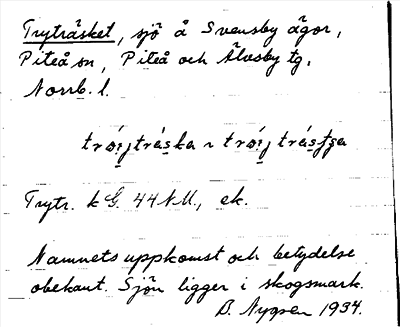 Tryträsket, sjö å Svensby ägor,
Piteå sn, Piteå och Älvsby tg,
Norrb. l.
Trytr. k G. 44 NU, ek.
Namnets uppkomst och betydelse
obekant. Sjön ligger i skogsmark.
B. 1934.